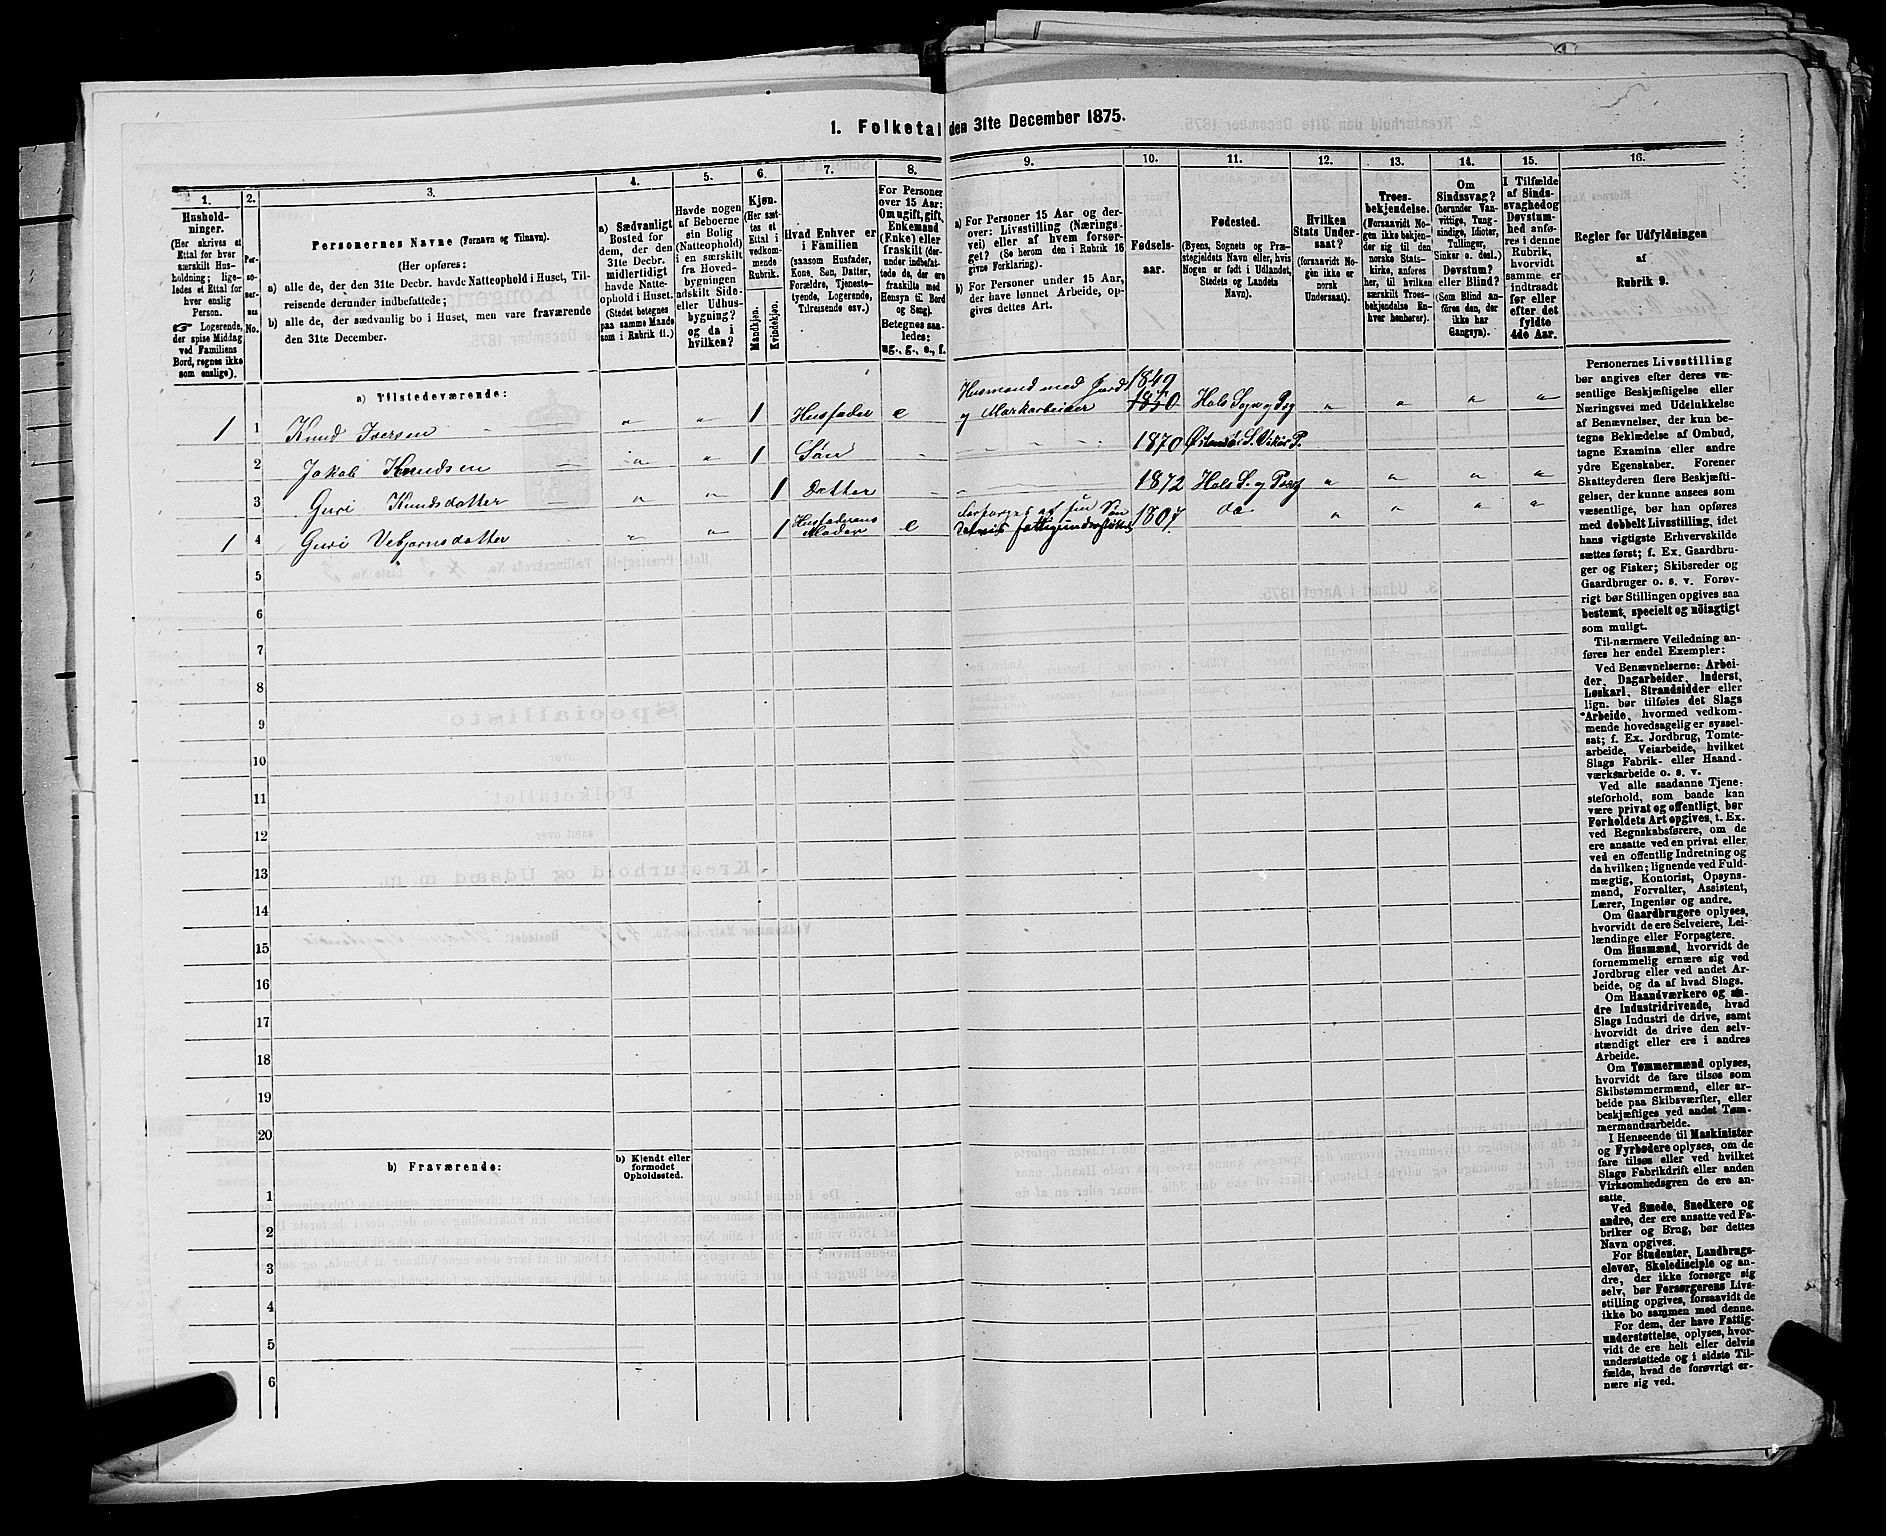 1. Folketal den 31te December 1875.
1.
Hushold-
ninger.
(Her skrives et
Ettal for hver
særskilt Hus-
holdning; lige-
ledes et Ettal for
hver enslig
Person.
☞ Logerende,
der spise Middag
ved Familiens
Bord, regnes ikke
som enslige).
2.
Per-
so-
ner-
nes
No.
3.
Personernes Navne (Fornavn og Tilnavn).
(Her opføres:
a) alle de, der den 31te Decbr. havde Natteophold i Huset, Til-
reisende derunder indbefattede;
b) alle de, der sædvanlig bo i Huset, men vare fraværende
den 31te December.
4.
a) Sædvanligt
Bosted for
dem, der den
31te Decbr.
midlertidigt
havde Natte-
ophold i Huset.
(Stedet betegnes
paa samme Maade
som i Rubrik 11.)
5.
Havde nogen
af Beboerne
sin Bolig
(Natteophold)
i en særskilt
fra Hoved-
bygningen
adskilt Side-
eller Udhus-
bygning?
og da i
hvilken?
6.
Kjøn.
(Her sæt-
tes et
Ettal i
vedkom-
mende
Rubrik.
Mandkjøn.
Kvindekjøn.
7.
Hvad Enhver er
i Familien
(saasom Husfader,
Kone, Søn, Datter,
Forældre, Tjeneste-
tyende, Logerende,
Tilreisende osv.)
8.
For Personer
over 15 Aar:
Om ugift, gift,
Enkemand
(Enke) eller
fraskilt (der-
under indbefat-
tede de, der ere
fraskilte med
Hensyn til Bord
og Seng).
Betegnes saa-
ledes:
ug., g., e., f.
9.
a) For Personer 15 Aar og der-
over: Livsstilling (Nærings-
vei) eller af hvem forsør-
get? (Se herom den i Rubrik 16
givne Forklaring).
b) For Personer under 15 Aar,
der have lønnet Arbeide, op-
gives dettes Art.
10.
Fødsels-
aar.
11.
Fødested.
(Byens, Sognets og Præ-
stegjeldets Navn eller, hvis
Nogen er født i Udlandet,
Stedets og Landets
Navn).
12.
Hvilken
Stats Under-
saat?
(forsaavidt No-
gen ikke er
norsk
Undersaat).
13.
Troes-
bekjendelse.
(Forsaavidt No-
gen ikke bekjen-
der sig til den
norske Stats-
kirke, anføres
her, til hvilken
særskilt Troes-
bekjendelse En-
hver henhører).
14.
Om
Sindssvag?
(herunder Van-
vittige, Tung-
sindige, Idioter,
Tullinger,
Sinker o. desl.)
Døvstum?
eller Blind?
(Som Blind an-
føres den, der
ikke har
Gangsyn).
15.
I Tilfælde
af Sinds-
svaghed og
Døvstum-
hed anfø-
res i denne
Rubrik,
hvorvidt
samme er
indtraadt
før eller
efter det
fyldte
4de Aar.
16.
Regler for Udfyldningen
af
Rubrik 9.
a) Tilstedeværende:
1 1 Knud Iversen " " 1 Husfader e Husmand med Jord og Markarbeider 1849 1850 Hols Sogn og Pgj " " " "
2 Jakob Knudsen " " 1 Søn - - 1870 Østensø S. Vikør P.
3 Guri Knudsdatter " " 1 Datter - " 1872 Hols S. og Pgj " " " "
1 4 Guri Vebjørnsdatter " " 1 Husfaderens Moder e forsørget af sin Søn delvis fattigunderstøttet 1807 do " " " "
5
6
7
8
9
10
11
12
13
14
15
16
17
18
19
20
b) Fraværende:
b) Kjendt eller
formodet
Opholdssted.
1
2
3
4
5
6
Personernes Livsstilling
bør angives efter deres væ-
sentlige Beskjæftigelse eller
Næringsvei med Udelukkelse
af Benævnelser, der kun be-
tegne Beklædelse af Ombud,
tagne Examina eller andre
ydre Egenskaber. Forener
Skatteyderen flere Beskjæfti-
gelser, der kunne ansees som
væsentlige, bør han opføres
med dobbelt Livsstilling, idet
hans vigtigste Erhvervskilde
sættes først; f. Ex. Gaardbru-
ger og Fisker; Skibsreder og
Gaardbruger o. s. v. Forøv-
rigt bør Stillingen opgives saa
bestemt, specielt og nöiagtigt
som muligt.
Til nærmere Veiledning an-
føres her endel Exempler:
Ved Benævnelserne: Arbei-
der, Dagarbeider, Inderst,
Løskarl, Strandsidder eller
lign. bør tilføies det Slags
Arbeide, hvormed vedkom-
mende hovedsagelig er syssel-
sat; f. Ex. Jordbrug, Tomte-
arbeide, Veiarbeide, hvilket
Slags Fabrik- eller Haand-
værksarbeide o. s. v.
Ved alle saadanne Tjene-
steforhold, som baade kan
være privat og offentligt, bør
Forholdets Art opgives, t. Ex.
ved Regnskabsførere, om de
ere ansatte ved en privat eller
ved en offentlig Indretning og
da hvilken; lignende ved Fuld-
mægtig, Kontorist, Opsyns-
mand, Forvalter, Assistent,
Lærer, Ingeniør og andre.
Om Gaardbrugere oplyses,
hvorvidt de ere Selveiere, Lei-
lændinge eller Forpagtere.
Om Husmænd, hvorvidt de
fornemmelig ernære sig ved
Jordbrug eller ved andet Ar-
beide, og da af hvad Slags.
Om Haandværkere og an-
dre Industridrivende, hvad
Slags Industri de drive, samt
hvorvidt de drive den selv-
stændigt eller ere i andres
Arbeide.
Om Tømmermænd oplyses,
hvorvidt de fare tilsøs som
Skibstømmermænd, eller ar-
beide paa Skibsværfter, eller
beskjæftiges ved andet Tøm-
mermandsarbeide.
I Henseende til Maskinister
og Fyrbødere oplyses, om de
fare tilsøs eller ved hvilket
Slags Fabrikdrift eller anden
Virksomhedsgren de ere an-
satte.
Ved Smede, Snedkere og
andre, der ere ansatte ved Fa-
briker og Brug, bør dettes
Navn opgives.
For Studenter, Landbrugs-
elever, Skoledisciple og an-
dre, der ikke forsørge sig
selv, bør Forsørgerens Livs-
stilling opgives, forsaavidt de
ikke bo sammen med denne.
For dem, der have Fattig-
understøttelse, oplyses, hvor-
vidt de ere helt eller delvis
understøttede og i sidste Til-
fælde, hvad de forøvrigt er-
nære sig ved.